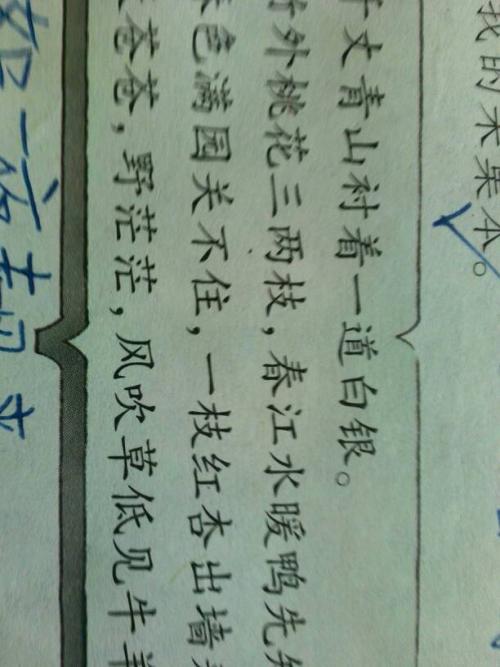 我的 果本。
千丈青山衬着一道白银。
竹外桃花三两枝，春江水暖鸭先
色满园关不住，一枝红杏出墙
苍苍，野茫茫，风吹草低见牛羊
一